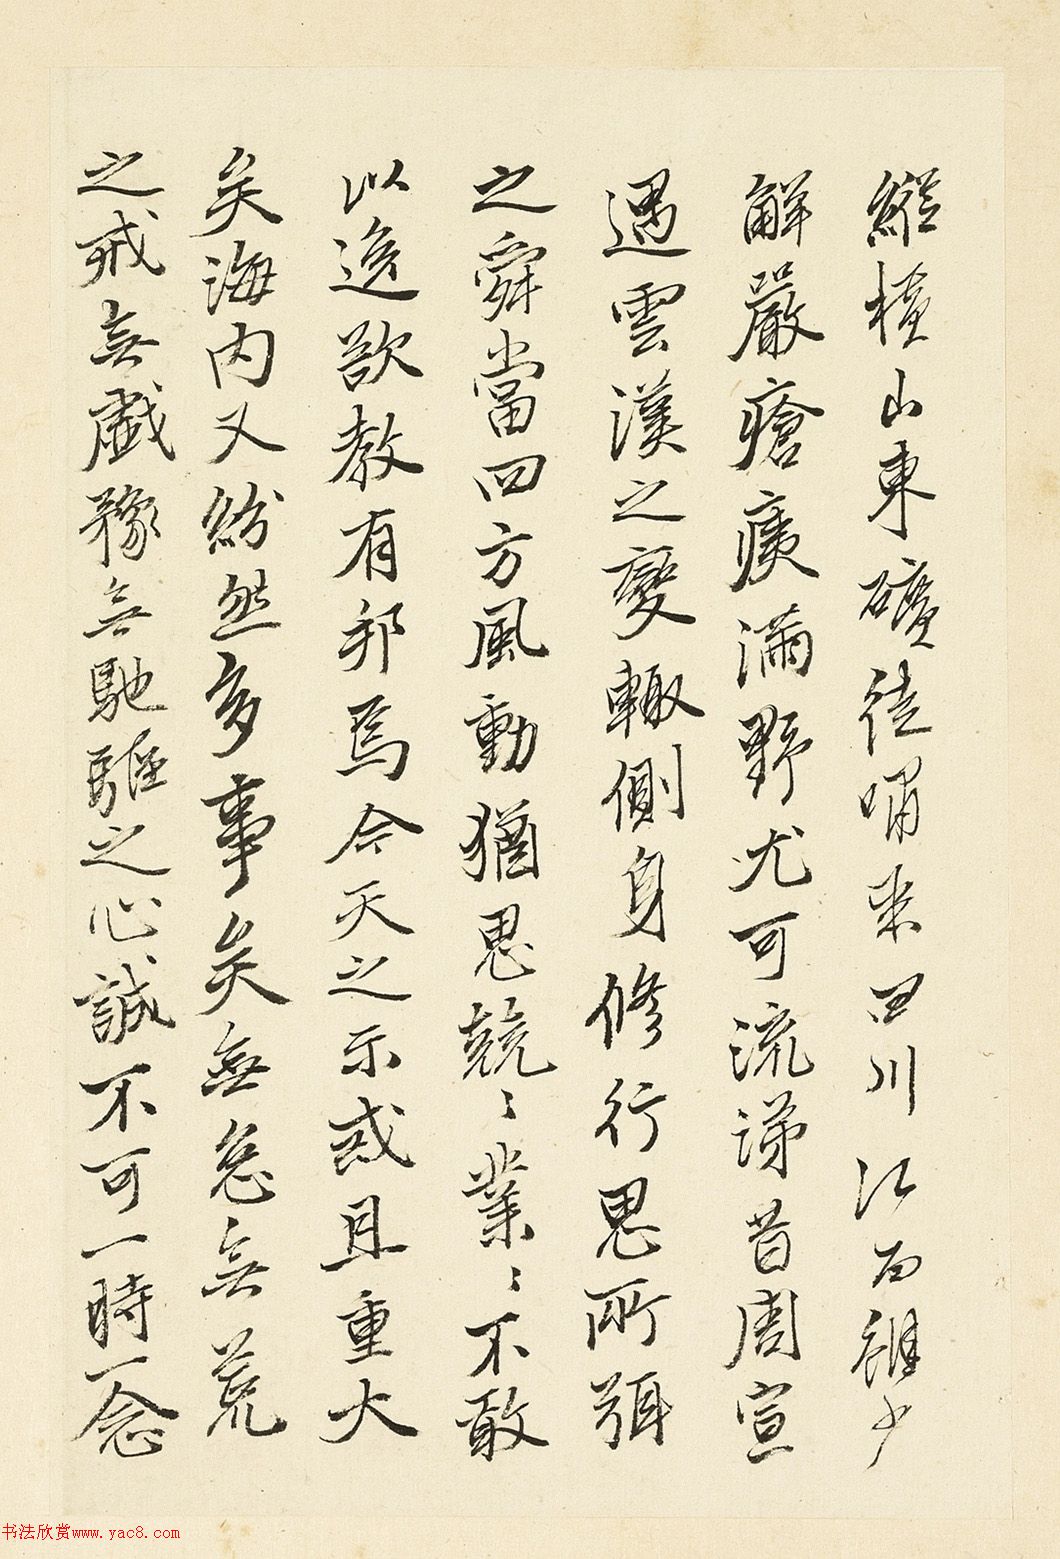 縱橫山東礦徒嘯聚四川江西雖少
解嚴瘡痍滿野尤可流涕昔周宣
遇雲漢之變輒側身修行思所弭
之舜當四方風動猶思兢〻業〻不敢
以逸欲教有邦焉今天之示戒且重大
矣海内又紛然多事矣無怠無荒
之戒無戲豫無馳驅之心誠不可一時一念
书法欣赏www.yac8.com